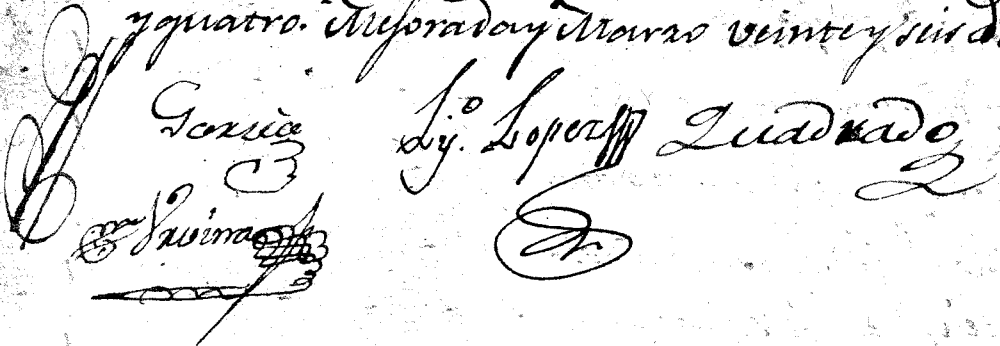 y quatro. Mejorada y Marzo veinte y seis d
Garcia Ly.º Lopez Quadrado
Urvina